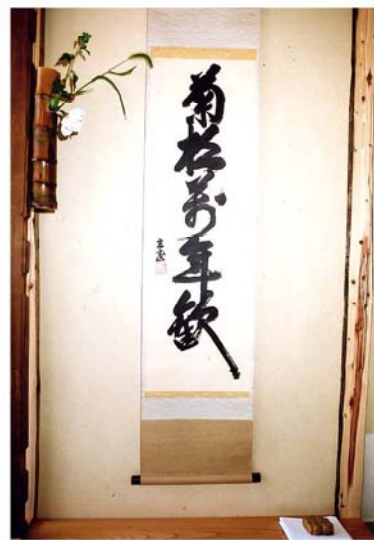 菊松萬年歓